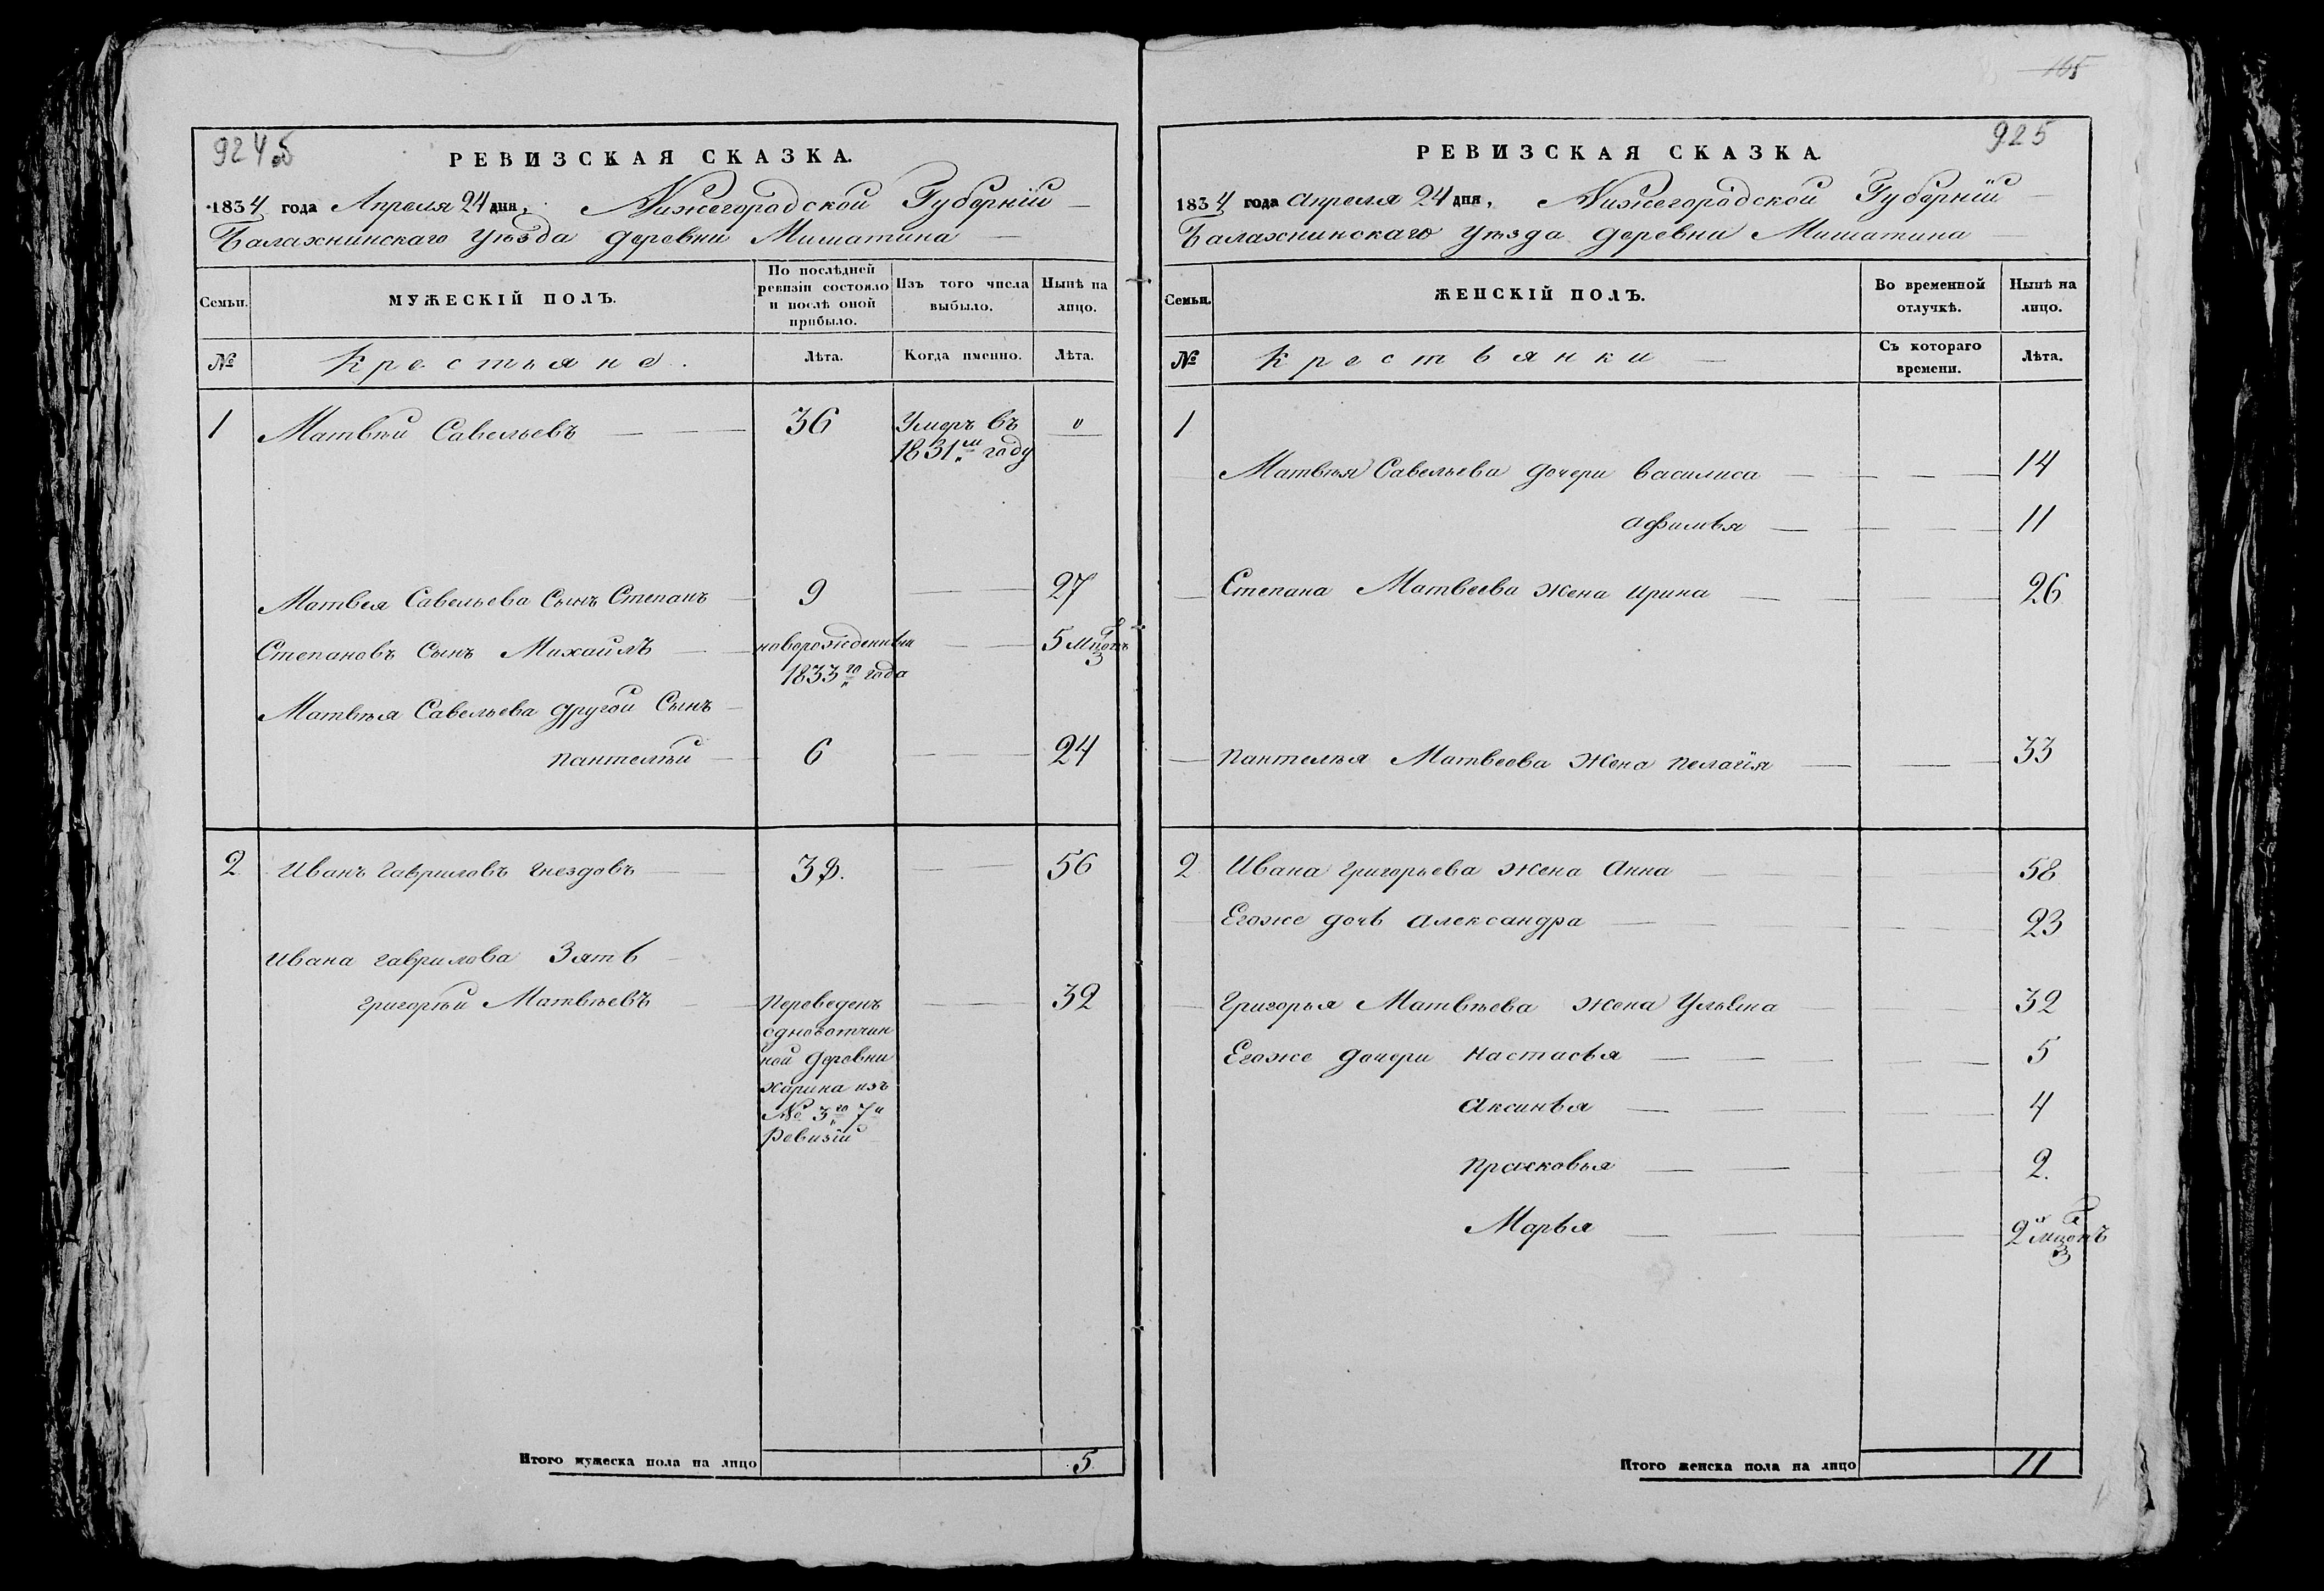 924 об
РЕВИЗСКАЯ СКАЗКА.
1834 года Апреля 24 дня. Нижегородской Губерніи
Балахнинскаго Уѣзда деревни Мишатина
Семьи.
МУЖЕСКІЙ ПОЛЪ.
По послѣдней ревизіи состояло и послѣ оной прибыло.
Изъ того числа выбыло.
Нынѣ на лицо.
№
Крестьяне.
Лѣта.
Когда именно.
Лѣта.
1 Матвѣй Савельевъ 36 Умеръ въ "
1831м году
Матвея Савельева Сынъ Степанъ 9 27
Степановъ Сынъ Михаилъ новорожденный 5 мцовъ
1833го года
Матвѣя Савельева другой Сынъ
пантелѣй 6 24
2 Иванъ Гавриловъ Гнездовъ 38. 56
Ивана Гаврилова Зять
григорѣй Матвѣевъ Переведенъ 32
одновотчин
ной деревни
харина изъ
№ 3го 7й
Ревизіи
Итого мужеска пола на лицо 5
165
925
РЕВИЗСКАЯ СКАЗКА.
1834 года апреля 24 дня, Нижегородской Губерніи
Балахнинскаго Уѣзда деревни Мишатина
Семьи.
ЖЕНСКІЙ ПОЛЪ.
Во временной отлучкѣ.
Нынѣ на лицо.
№
Крестьянки
Съ котораго времени.
Лѣта.
1
Матвѣя Савельева дочери василиса 14
афимья 11
Степана Матвеева жена ирина 26
пантелѣя Матвеева жена пелагія 33
2 Ивана григорьева жена Анна 58
Егоже дочь александра 23
Григорья Матвѣева жена Ульяна 32
Егоже дочери настасья 5
аксинья 4
прасковья 2.
Марья 2 мцовъ
Итого женска пола на лицо 11